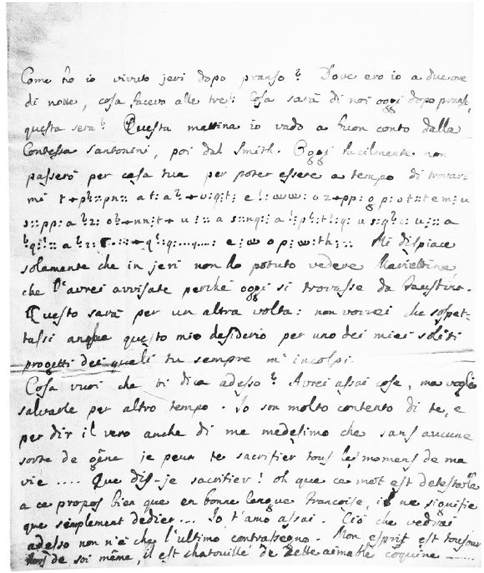 Come ho io vivuto jeri dopo pranso? Dove ero io a due ore
di notte, cosa facevo alle tre? Cosa sarà di noi oggi dopo pranso,
questa sera? Questa mattina io vado a buon conto dalla
Contessa Santonini, poi dal Smith. Oggi facilmente non
passerò per casa tua per poter essere a tempo di trovar-
mi
Mi dispiace
solamente che in jeri non ho potuto vedere Mariettina,
che l'avrei avvisata perchè oggi si trovasse da Faustina.
Questo sarà per un altra volta: non vorrei che sospet-
tassi anche questo mio desiderio per uno dei miei soliti
progetti dei quali tu sempre m'incolpi.
Cosa vuoi che ti dica adesso? Avrei assai cose, ma voglio
salvarle per altro tempo. Io son molto contento di te, e
per dir il vero anche di me medesimo che sans aucune
sorte de gêne je peux te sacrifier tous les momens de ma
vie .... Que dis-je sacrifier! oh que ce mot est detestable
a ce propos bien que en bonne langue Francoise, il ne signifie
que simplement dedier... Io t'amo assai. Ciò che vedrai
adesso non n'è che l'ultimo contrasegno. Mon esprit est toujours
hors de soi même, il est chatouillé de cette aimable coquine